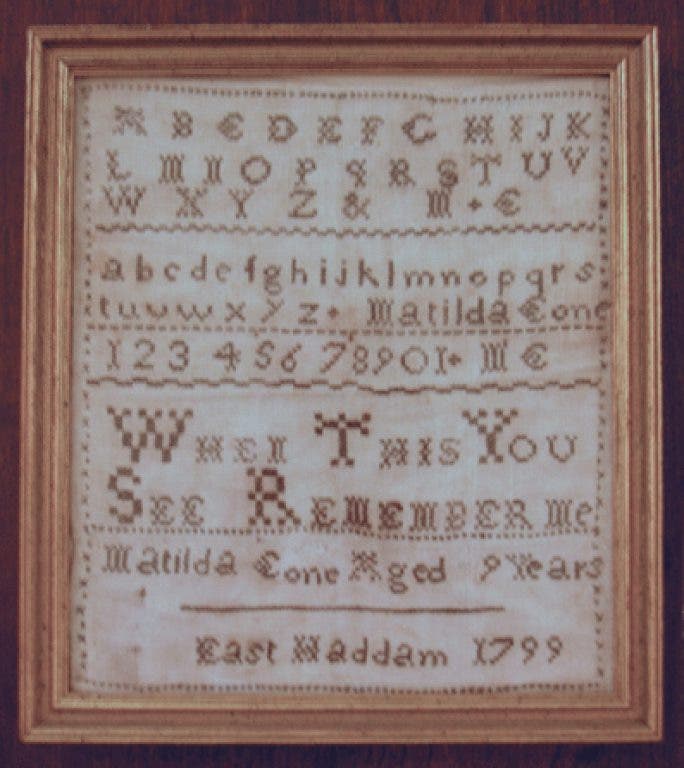 A B C D E F G H I J K
L M N O P Q R S T U V
W X Y Z & M + C
a b c d e f g h i j k l m n o p q r s
t u v w x y z + Matilda Cone
1 2 3 4 5 6 7 8 9 0 1 + M C
WHEN THIS YOU
SEE REMEMBER Me
Matilda Cone Aged 9 Years
East Haddam 1799